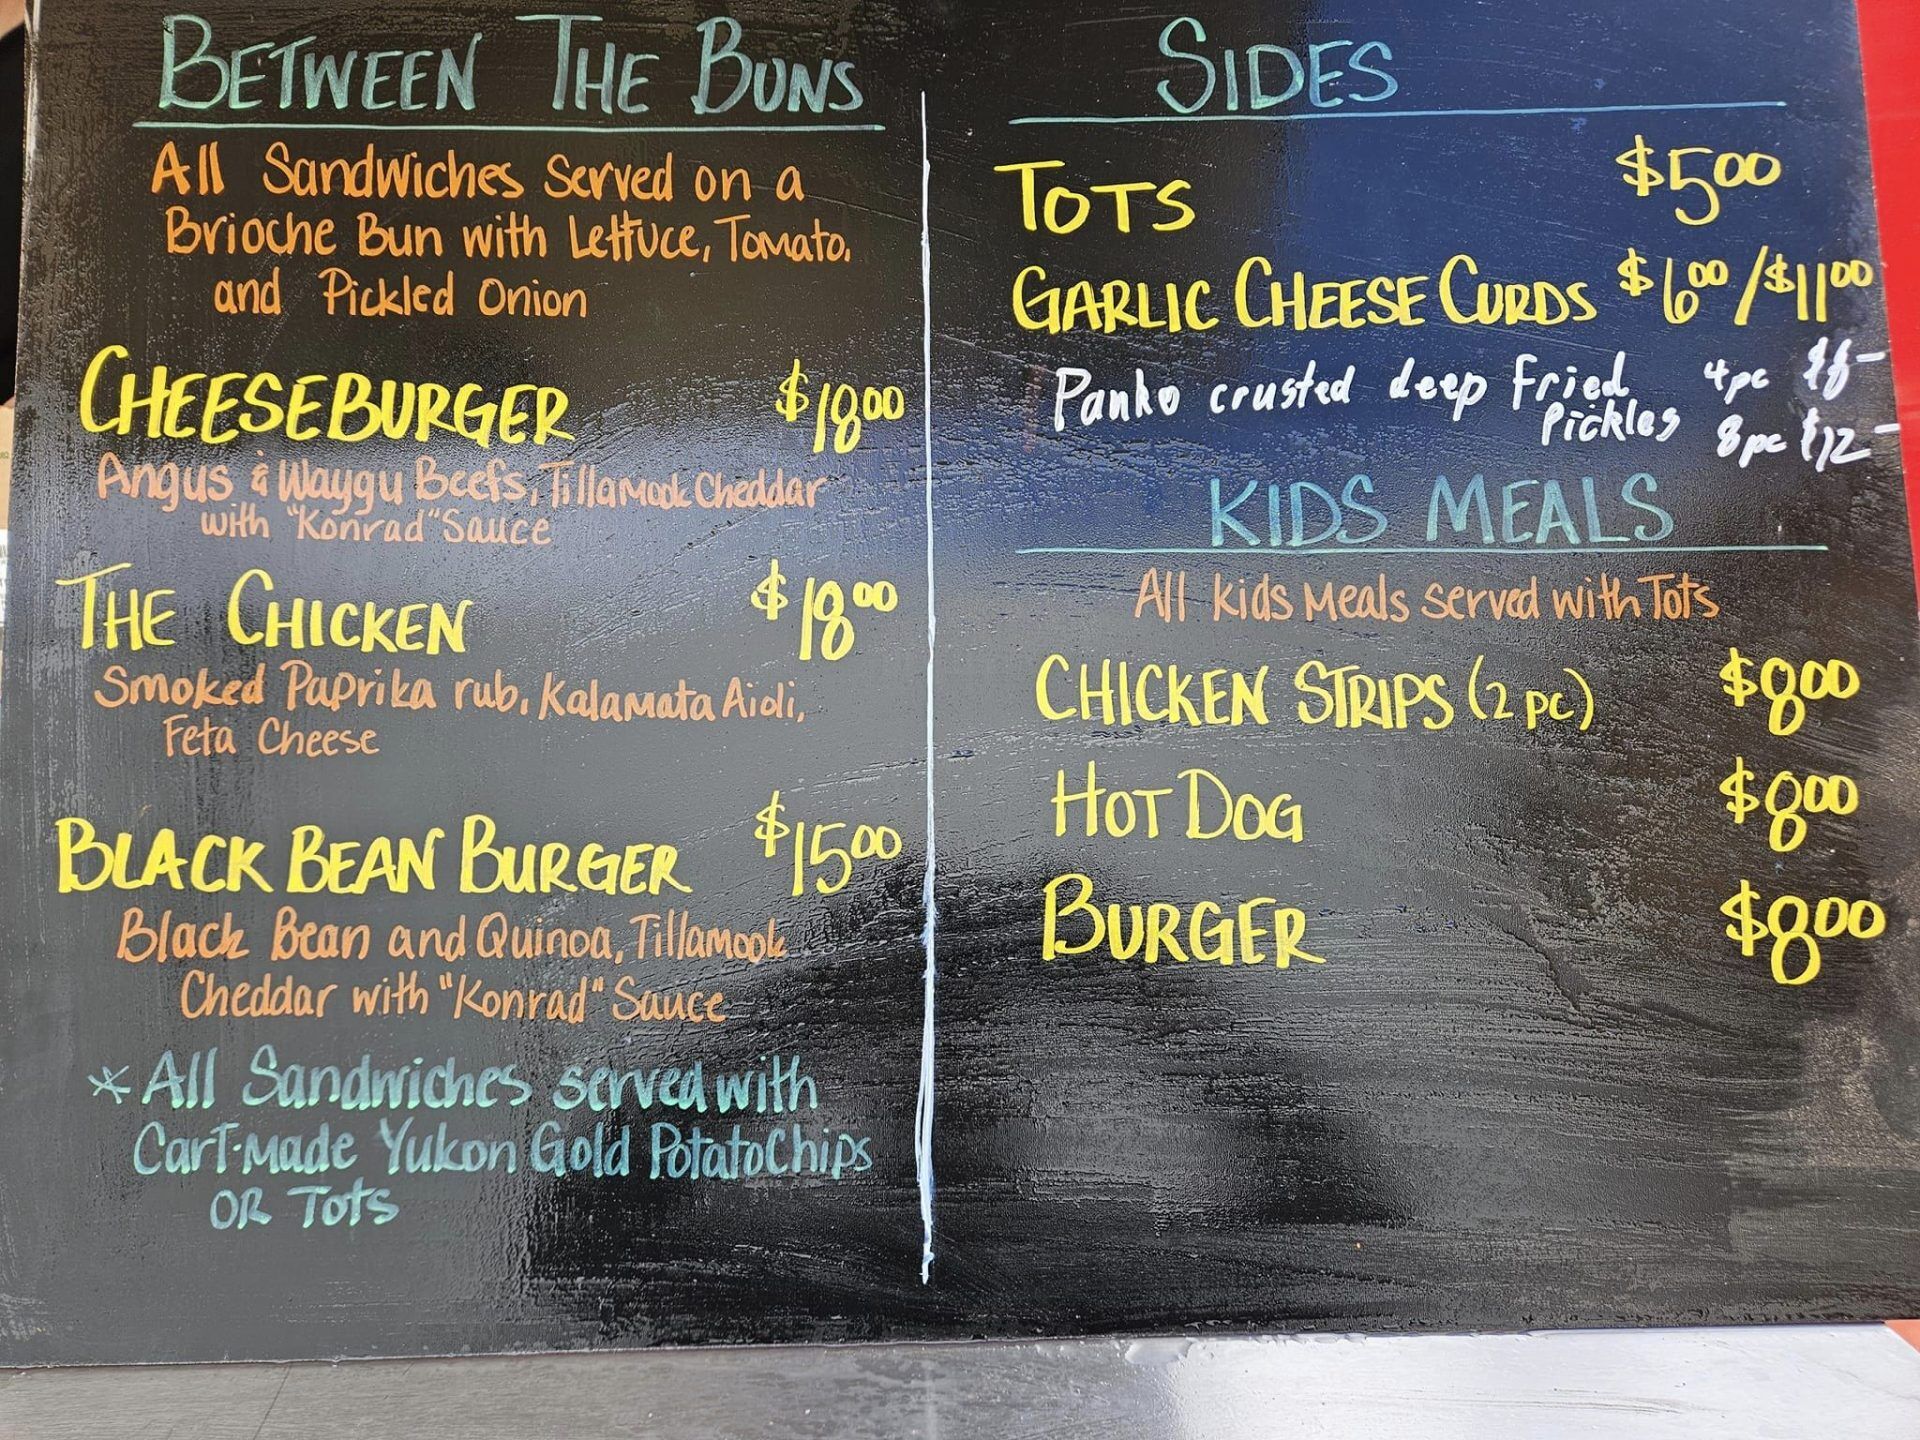 BETWEEN THE BUNS
All Sandwiches Served on a
Brioche Bun with Lettuce, Tomato,
and Pickled Onion
CHEESEBURGER $18.00
Angus & Waygu Beefs, Tillamook Cheddar
with "Konrad" Sauce
THE CHICKEN $18.00
Smoked Paprika rub, Kalamata Aioli,
Feta Cheese
BLACK BEAN BURGER $15.00
Black Bean and Quinoa, Tillamook
Cheddar with "Konrad" Sauce
* All Sandwiches served with
Cart-made Yukon Gold Potato Chips
OR Tots
SIDES
TOTS $5.00
GARLIC CHEESE CURDS $6.00/$11.00
Panko crusted deep Fried 4pc
Pickles 8pc $12-
KIDS MEALS
All kids Meals served with Tots
CHICKEN STRIPS (2 PC) $8.00
HOT DOG $8.00
BURGER $8.00